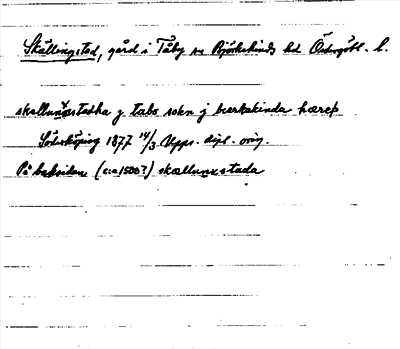 Skällingstad, gård i Täby sn Björkekinds hd Östergötl. l.
skællungxstadha j tabo sokn j bærkakinda hæreþ
Söderköping 1877 14/3 Upps. dipl. orig.
På baksidan (c:a 1500?) skællunxstada